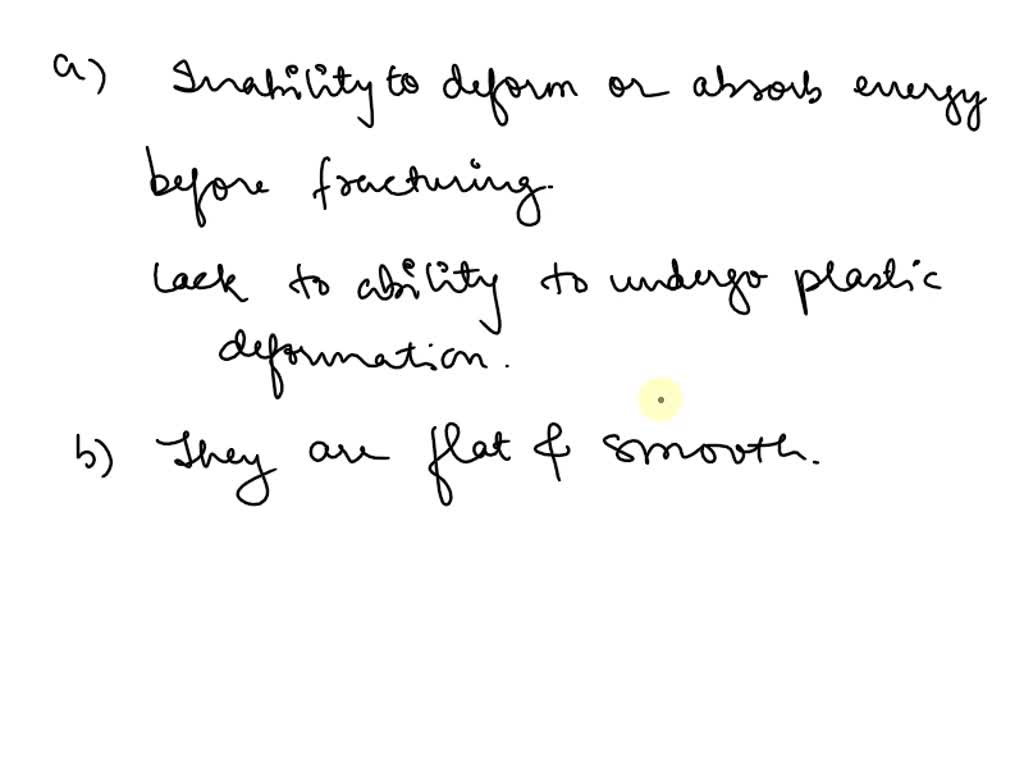 a) Inability to deform or absorb energy
before fracturing.
lack to ability to undergo plastic
deformation.
b) They are flat & smooth.